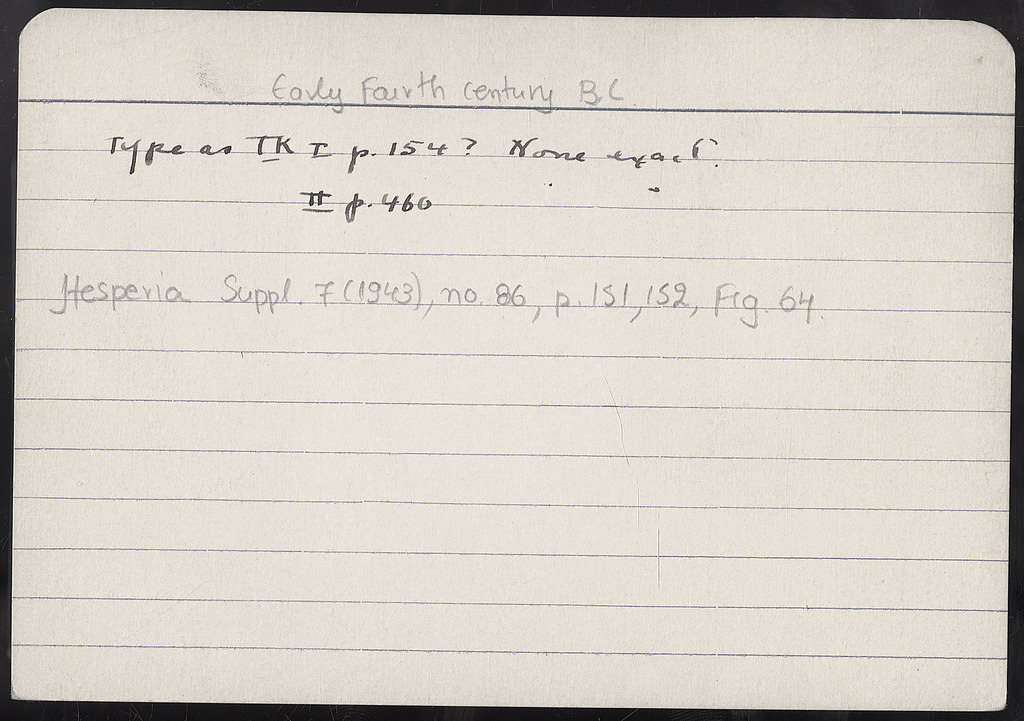 Early Fourth Century B.C.
Type as TK I p. 154? None exact.
II p. 460
Hesperia Suppl. 7 (1943), no. 86, p. 151, 152, Fig. 64.